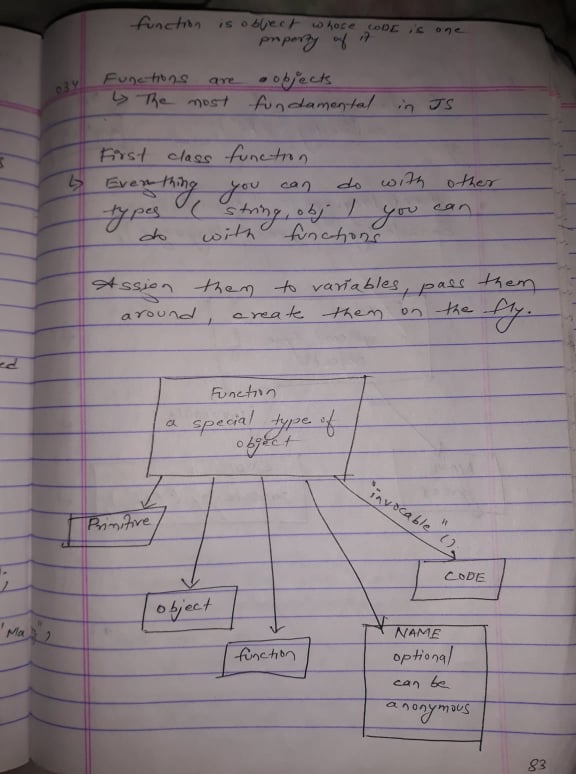 function is object whose CODE is one
property of it
034 Functions are objects
↳ The most fundamental in JS
First class function
↳ Everything you can do with other
types ( string, obj ) you can
do with functions
Assign them to variables, pass them
around, create them on the fly.
Function
a special type of
object
"invocable" ()
Primitive
CODE
object
function
NAME
optional
can be
anonymous
ed
;
83